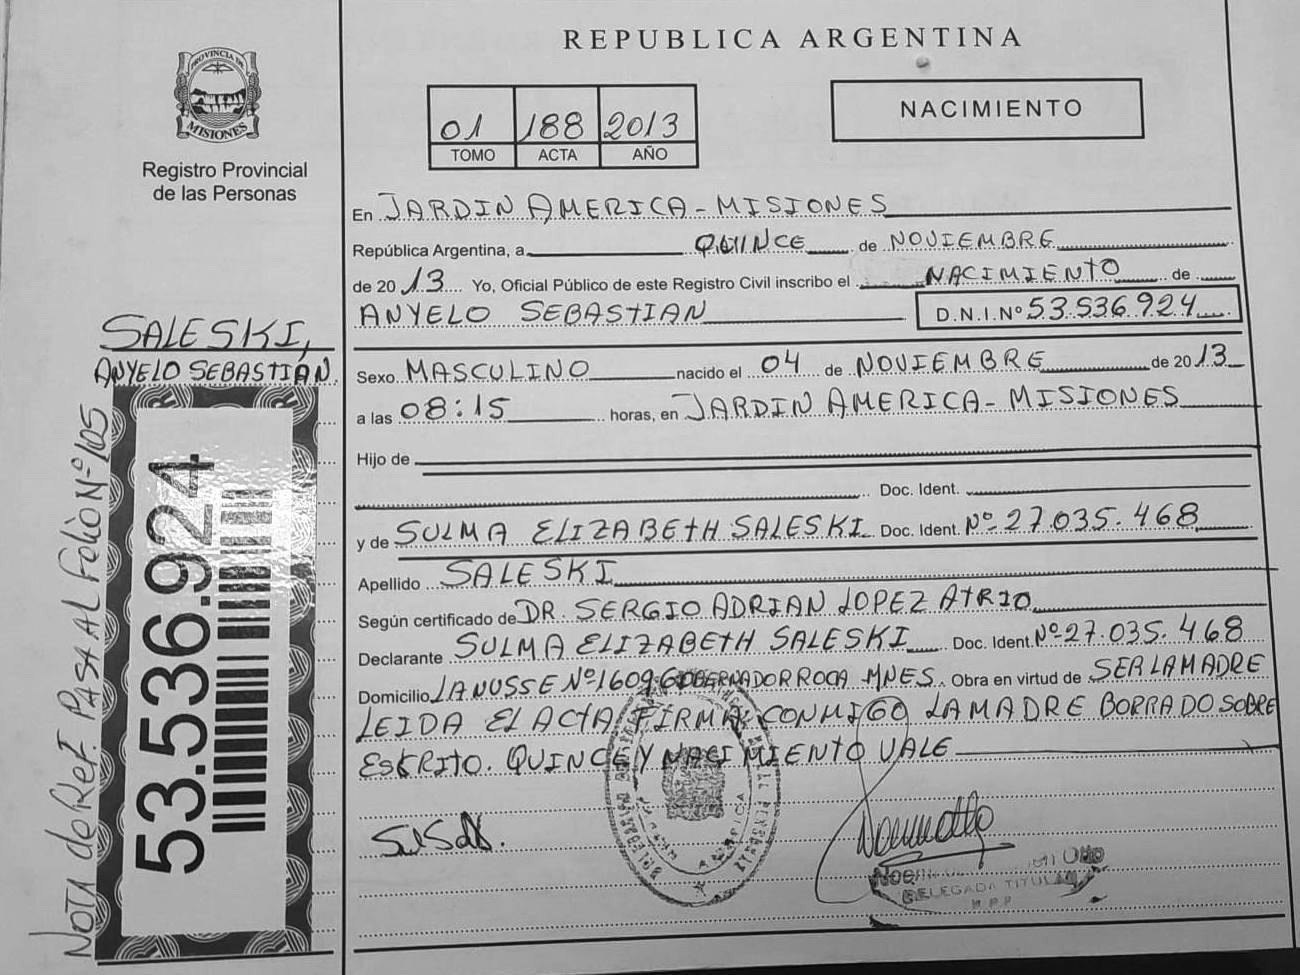 PROVINCIA DE
MISIONES
Registro Provincial
de las Personas
SALESKI,
ANYELO SEBASTIÁN.
53.536.924
NOTA de Ref. PASA AL Folio Nº 105
REPUBLICA ARGENTINA
01 188 2013
TOMO ACTA AÑO
NACIMIENTO
En JARDIN AMERICA - MISIONES
República Argentina, a QUINCE de NOVIEMBRE
de 2013 Yo, Oficial Público de este Registro Civil inscribo el NACIMIENTO de
ANYELO SEBASTIAN D.N.I.Nº 53.536.924
Sexo MASCULINO nacido el 04 de NOVIEMBRE de 2013
a las 08:15 horas, en JARDIN AMERICA - MISIONES
Hijo de
Doc. Ident.
y de SULMA ELIZABETH SALESKI Doc. Ident. Nº 27.035.468
Apellido SALESKI
Según certificado de DR. SERGIO ADRIAN LOPEZ ATRIO
Declarante SULMA ELIZABETH SALESKI Doc. Ident. Nº 27.035.468
Domicilio LANUSSE Nº 1609 GOBERNADOR ROCA MNES. Obra en virtud de SER LA MADRE
LEIDA EL ACTA FIRMA CONMIGO LA MADRE BORRADO SOBRE
ESCRITO. QUINCE Y NACIMIENTO VALE
DELEGADA TITULAR